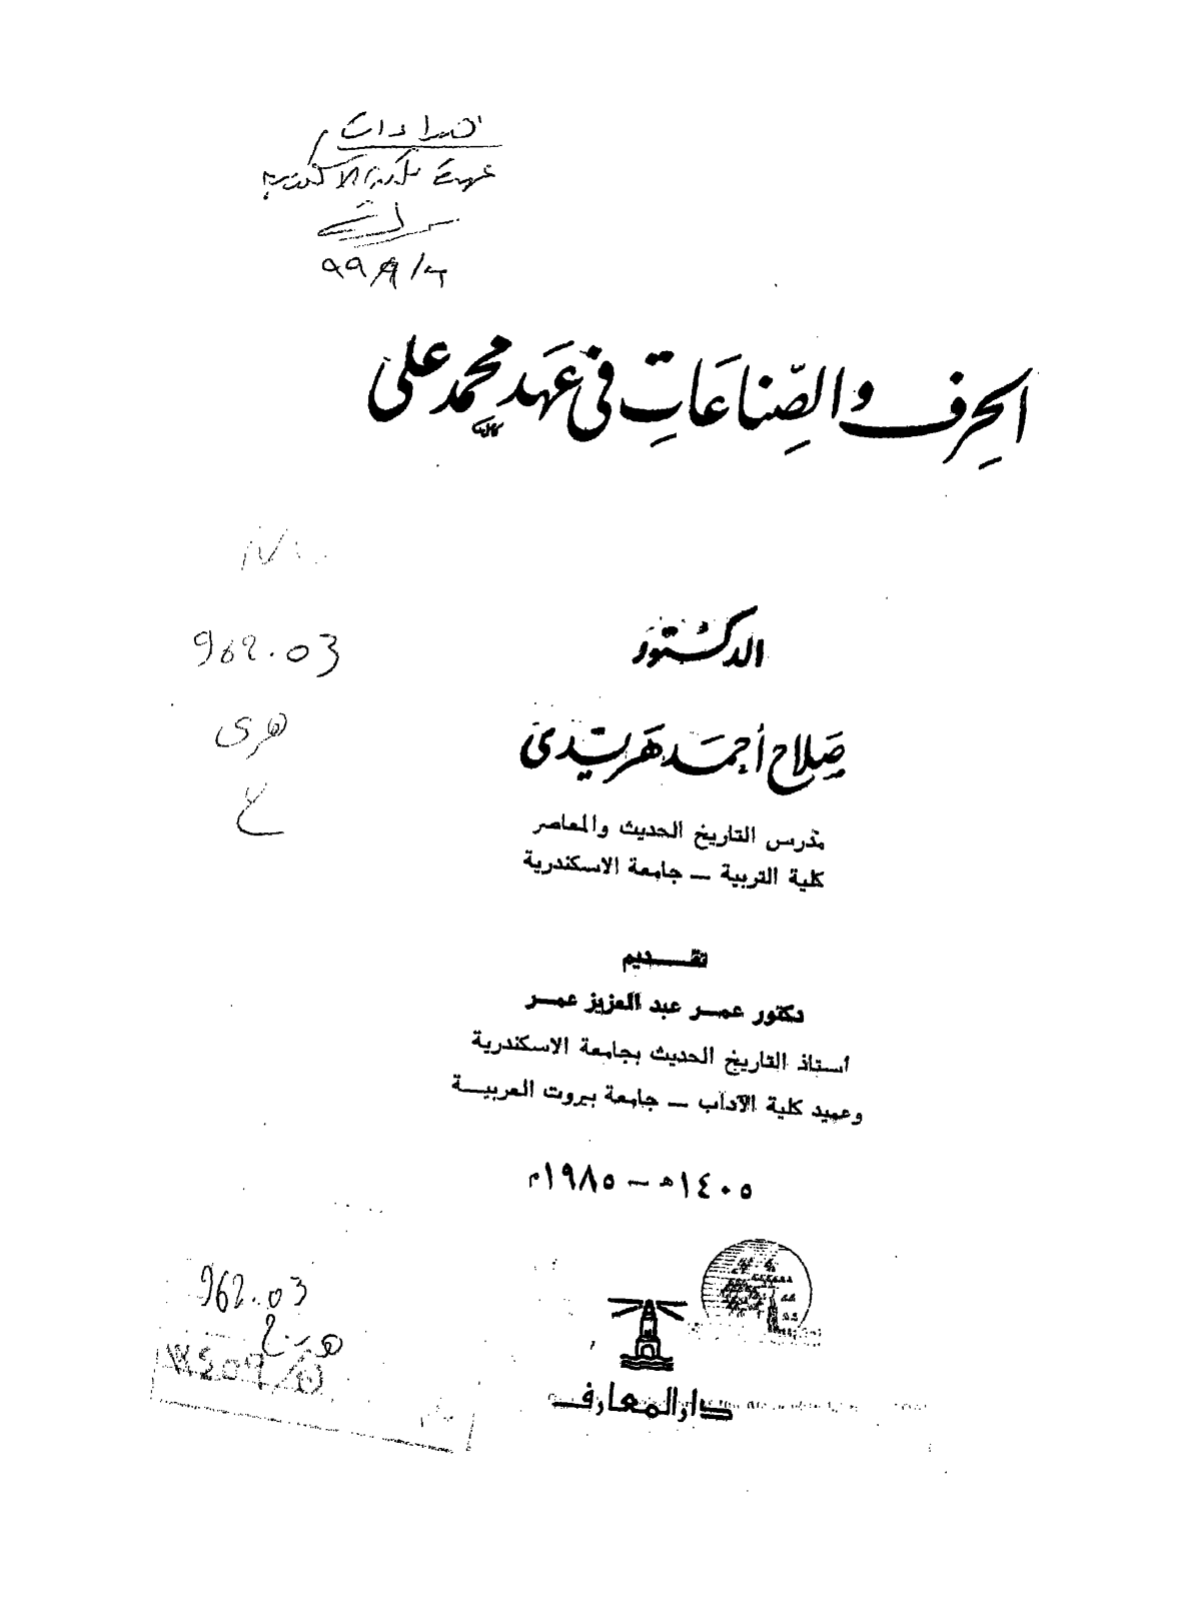 اهداءات
٩٩٩/٢
الحِرف والصِّناعَاتِ في عَهد محمد علي
962.03
هرى
ع
الدكتور
صَلاح أحمَد هَريدى
مدرس التاريخ الحديث والمعاصر
كلية التربية – جامعة الاسكندرية
تقـــديم
دكتور عمــر عبد العزيز عمــر
أستاذ التاريخ الحديث بجامعة الاسكندرية
وعميد كلية الآداب – جامعة بيروت العربيــة
١٤٠٥هـ – ١٩٨٥م
962.03
دارالمعارف